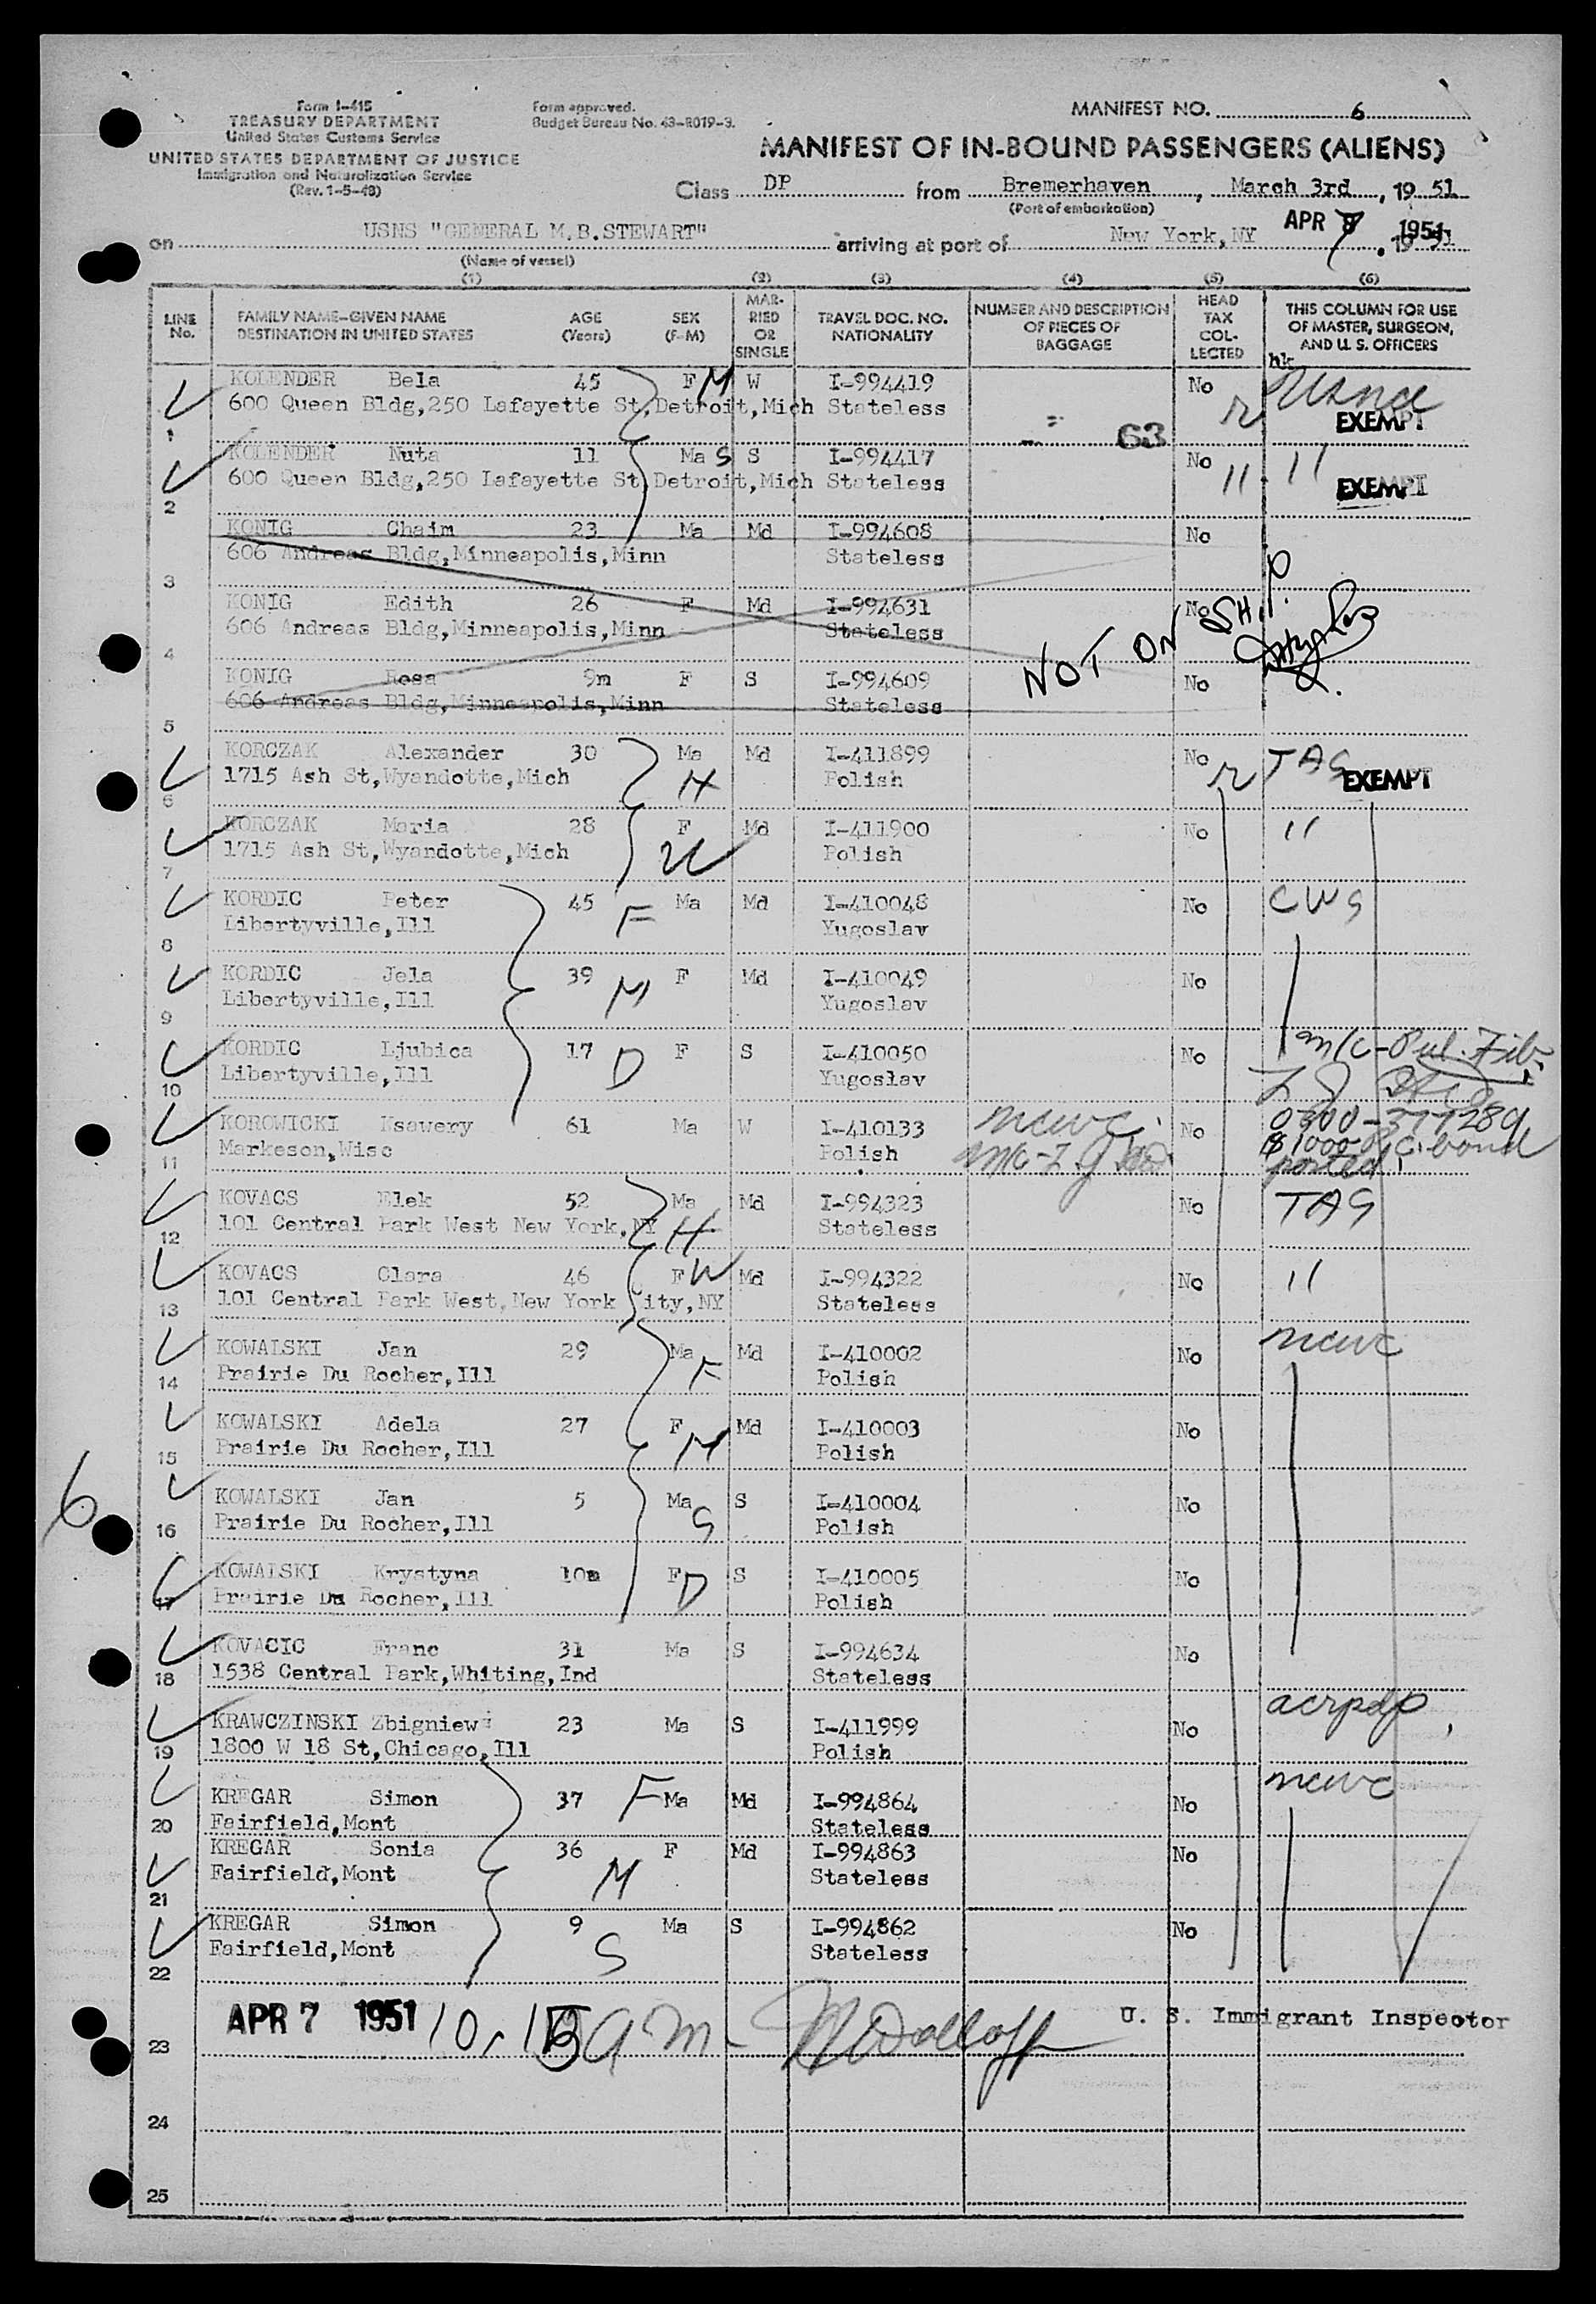 Form I-415
TREASURY DEPARTMENT
United States Customs Service
UNITED STATES DEPARTMENT OF JUSTICE
Immigration and Naturalization Service
(Rev. 1-5-48)
Form approved.
Budget Bureau No. 43-R019-3.
MANIFEST NO. 6
MANIFEST OF IN-BOUND PASSENGERS (ALIENS)
Class DP from Bremerhaven, March 3rd, 19 51
(Port of embarkation)
on USNS "GENERAL M.B.STEWART" arriving at port of New York, NY APR 7 1951
(Name of vessel)
(1) (2) (3) (4) (5) (6)
LINE No. FAMILY NAME-GIVEN NAME DESTINATION IN UNITED STATES AGE (Years) SEX (F-M) MAR-RIED OR SINGLE TRAVEL DOC. NO. NATIONALITY NUMBER AND DESCRIPTION OF PIECES OF BAGGAGE HEAD TAX COL-LECTED THIS COLUMN FOR USE OF MASTER, SURGEON, AND U. S. OFFICERS
KOLENDER Bela 45 F M W I-994419 No
600 Queen Bldg,250 Lafayette St,Detroit,Mich Stateless EXEMPT
1 63
KOLENDER Nuta 11 Ma S S I-994417 No " "
600 Queen Bldg,250 Lafayette St,Detroit,Mich Stateless EXEMPT
2
KONIG Chaim 23 Ma Md I-994608 No
606 Andreas Bldg,Minneapolis,Minn Stateless
3
KONIG Edith 26 F Md I-994631 No
606 Andreas Bldg,Minneapolis,Minn Stateless
4 NOT ON SHIP
KONIG Rosa 9m F S I-994609 No
606 Andreas Bldg,Minneapolis,Minn Stateless
5
KORCZAK Alexander 30 Ma Md I-411899 No TAS
1715 Ash St,Wyandotte,Mich H Polish EXEMPT
6
KORCZAK Maria 28 F Md I-411900 No "
1715 Ash St,Wyandotte,Mich W Polish
7
KORDIC Peter 45 F Ma Md I-410048 No CWS
Libertyville,Ill Yugoslav
8
KORDIC Jela 39 M F Md I-410049 No
Libertyville,Ill Yugoslav
9
KORDIC Ljubica 17 D F S I-410050 No m/c-Pul. Fib.
Libertyville,Ill Yugoslav
10
KOROWICKI Ksawery 61 Ma W I-410133 ncwc No 0300-377289
Markeson,Wisc Polish $1000 bond
11 posted
KOVACS Elek 52 Ma Md I-994323 No TAS
101 Central Park West New York,NY H Stateless
12
KOVACS Clara 46 F W Md I-994322 No "
101 Central Park West,New York City,NY Stateless
13
KOWALSKI Jan 29 Ma F Md I-410002 No ncwc
Prairie Du Rocher,Ill Polish
14
KOWALSKI Adela 27 F M Md I-410003 No
Prairie Du Rocher,Ill Polish
15
KOWALSKI Jan 5 Ma S S I-410004 No
Prairie Du Rocher,Ill Polish
16
6
KOWALSKI Krystyna 10m F D S I-410005 No
Prairie Du Rocher,Ill Polish
17
KOVACIC Franc 31 Ma S I-994634 No
1538 Central Park,Whiting,Ind Stateless
18
KRAWCZINSKI Zbigniew 23 Ma S I-411999 No acrpdp
1800 W 18 St,Chicago,Ill Polish
19
KREGAR Simon 37 F Ma Md I-994864 No ncwc
Fairfield,Mont Stateless
20
KREGAR Sonia 36 F Md I-994863 No
Fairfield,Mont M Stateless
21
KREGAR Simon 9 Ma S I-994862 No
Fairfield,Mont S Stateless
22
APR 7 1951 am U. S. Immigrant Inspector
23
24
25